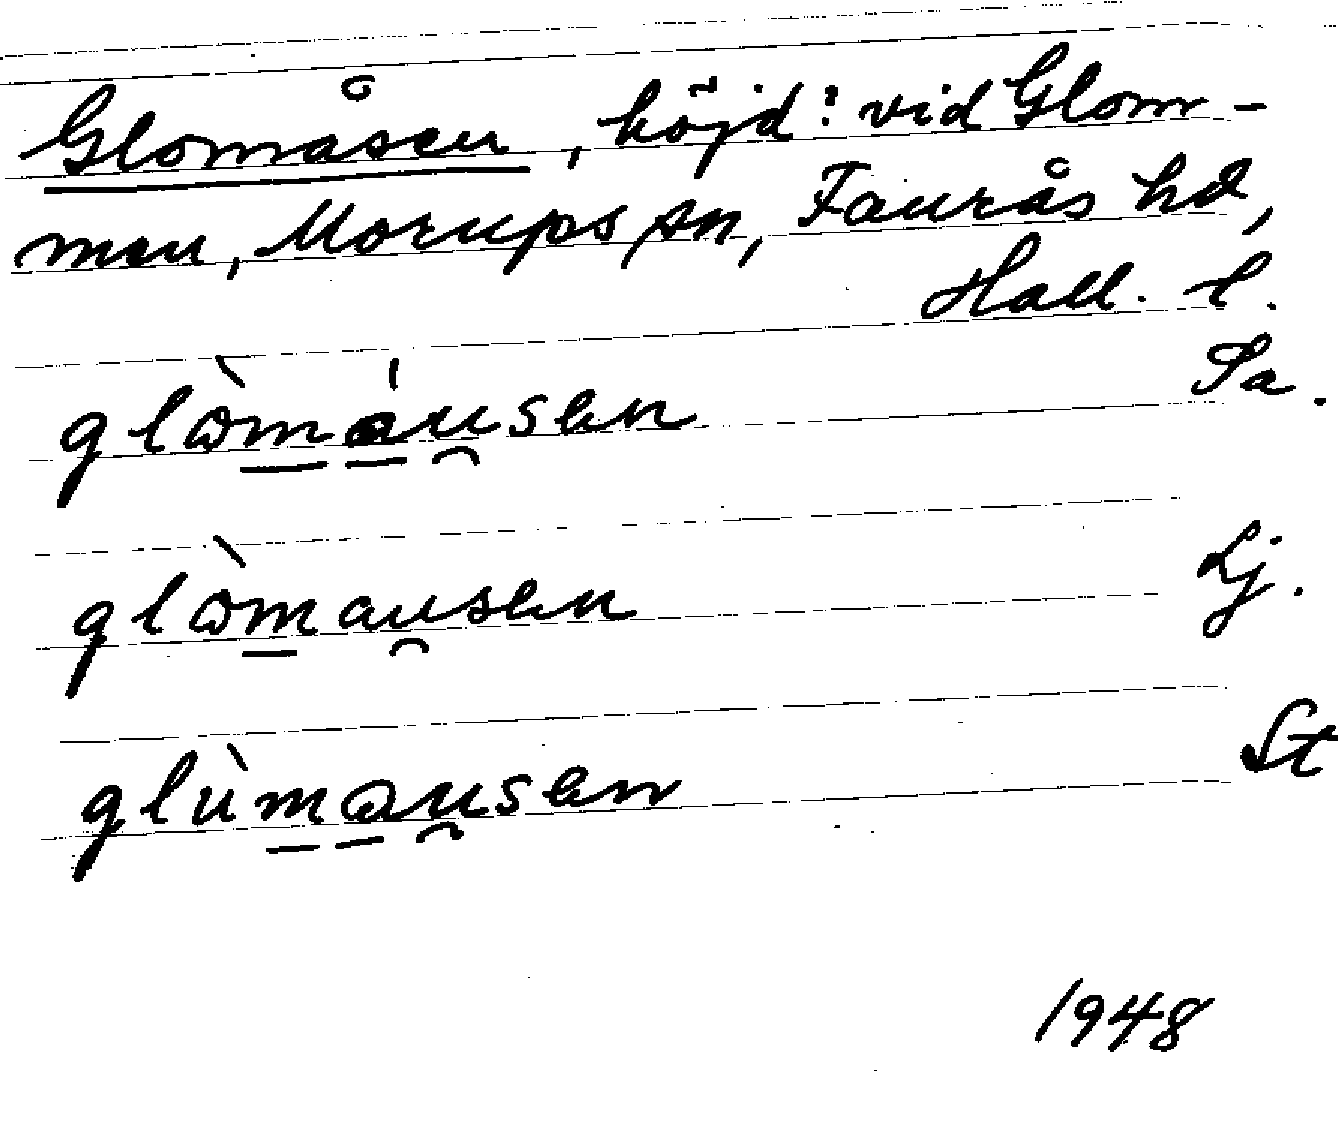 Glomåsen, höjd: vid Glom-
men, Morups sn, Faurås hd,
Hall. l.
glòmáusen Sa.
glòmausen Lj.
glùmausen St
1948